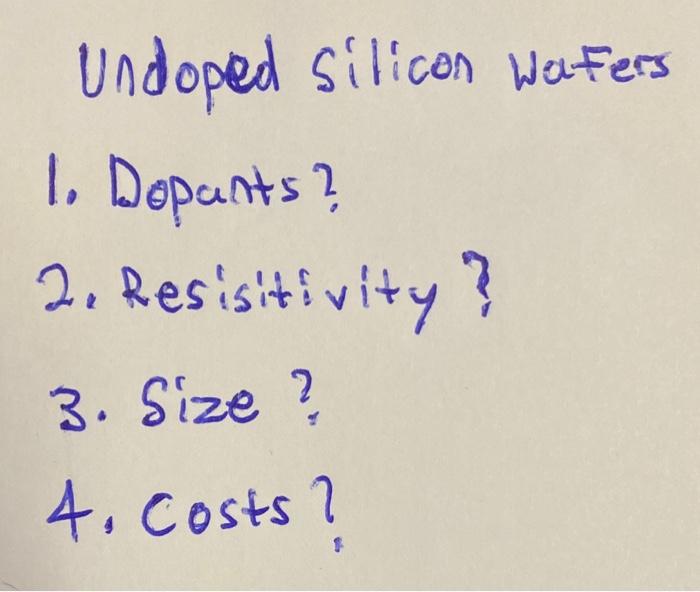 Undoped Silicon Wafers
1. Dopants?
2. Resisitivity?
3. Size?
4. Costs?